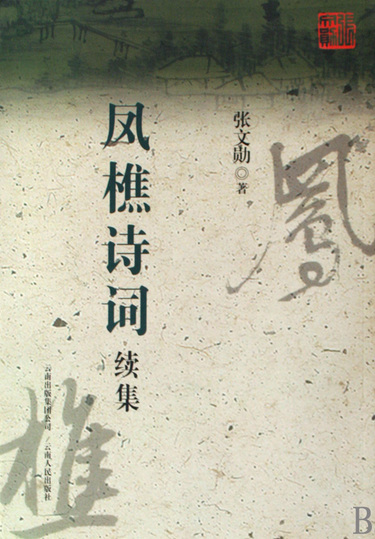 凤樵诗词
续集
张文勋◎著
鳳
樵
云南出版集团公司 云南人民出版社
B